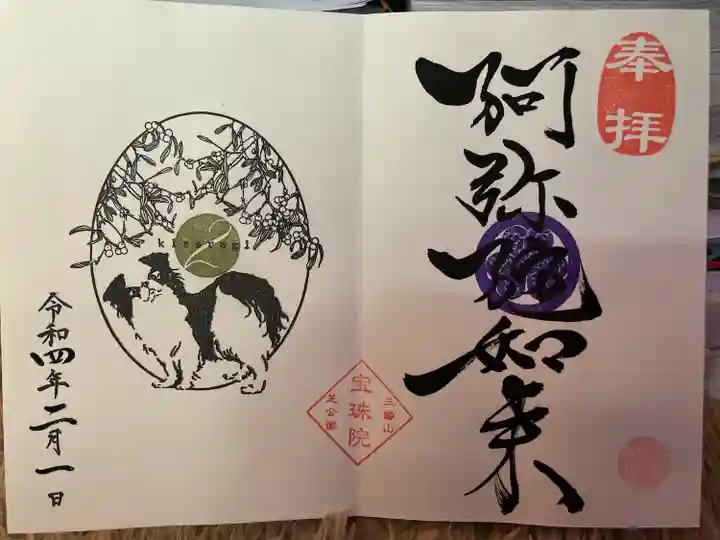 奉拝
阿弥陀如来
三縁山
宝珠院
芝公園
kisaragi
2
令和四年二月一日